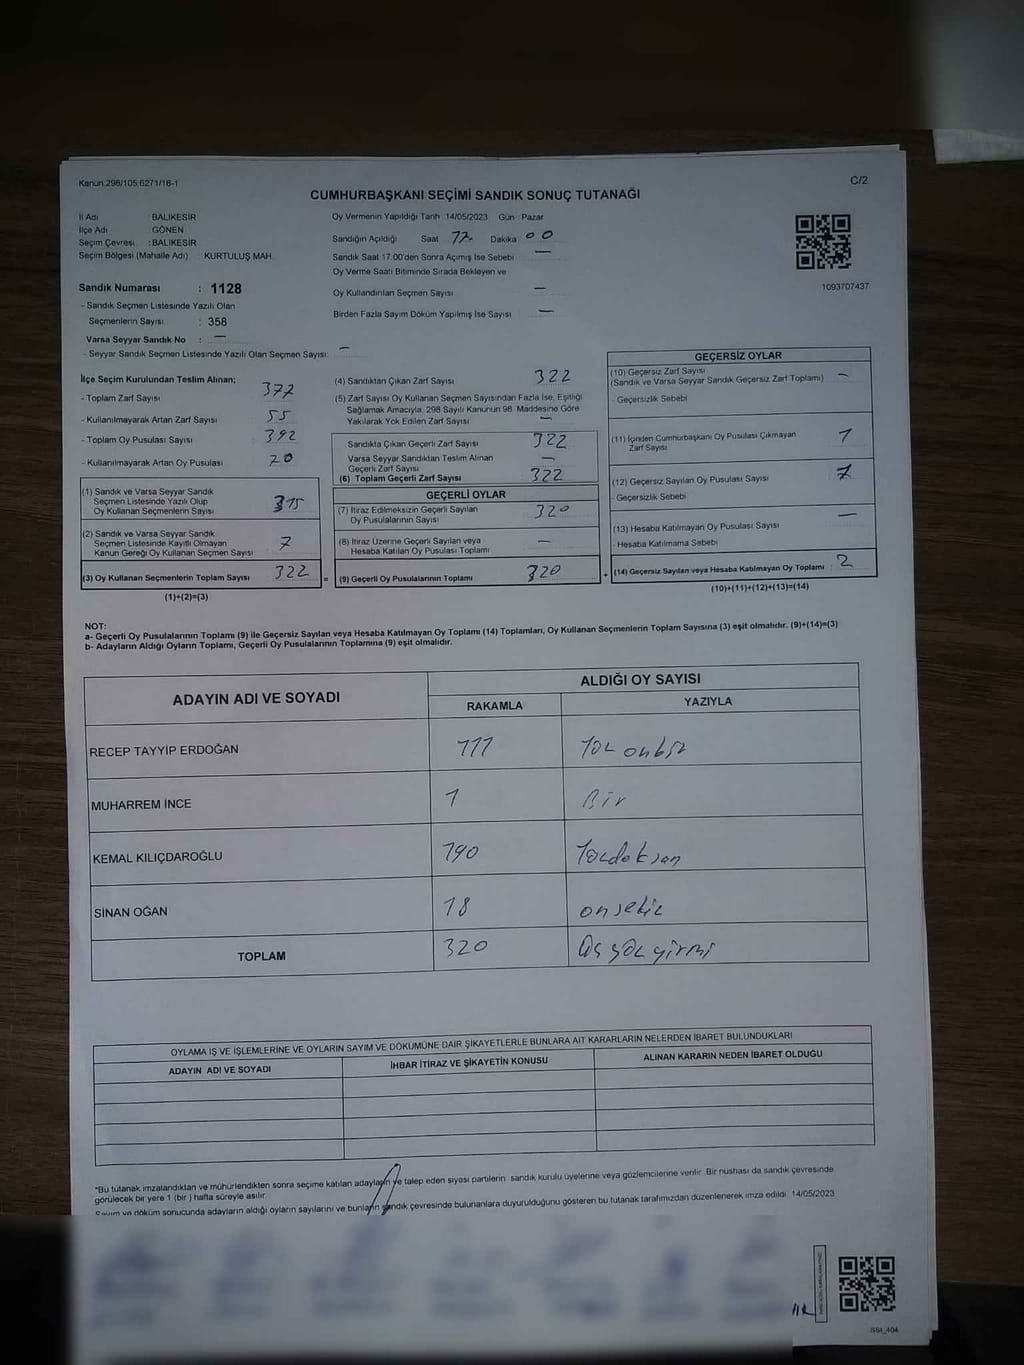 Kanun:298/105;6271/18-1
C/2
CUMHURBAŞKANI SEÇİMİ SANDIK SONUÇ TUTANAĞI
İl Adı : BALIKESİR
İlçe Adı : GÖNEN
Seçim Çevresi : BALIKESİR
Seçim Bölgesi (Mahalle Adı) : KURTULUŞ MAH.
Sandık Numarası : 1128
- Sandık Seçmen Listesinde Yazılı Olan
Seçmenlerin Sayısı : 358
Varsa Seyyar Sandık No : —
- Seyyar Sandık Seçmen Listesinde Yazılı Olan Seçmen Sayısı: —
Oy Vermenin Yapıldığı Tarih :14/05/2023 Gün : Pazar
Sandığın Açıldığı Saat 17 Dakika 00
Sandık Saat 17:00'den Sonra Açımış İse Sebebi —
Oy Verme Saati Bitiminde Sırada Bekleyen ve
Oy Kullandırılan Seçmen Sayısı —
Birden Fazla Sayım Döküm Yapılmış İse Sayısı —
1093707437
İlçe Seçim Kurulundan Teslim Alınan;
- Toplam Zarf Sayısı 377
- Kullanılmayarak Artan Zarf Sayısı 55
- Toplam Oy Pusulası Sayısı 392
- Kullanılmayarak Artan Oy Pusulası 70
(1) Sandık ve Varsa Seyyar Sandık
Seçmen Listesinde Yazılı Olup
Oy Kullanan Seçmenlerin Sayısı 315
(2) Sandık ve Varsa Seyyar Sandık
Seçmen Listesinde Kayıtlı Olmayan
Kanun Gereği Oy Kullanan Seçmen Sayısı 7
(3) Oy Kullanan Seçmenlerin Toplam Sayısı 322 =
(1)+(2)=(3)
(4) Sandıktan Çıkan Zarf Sayısı 322
(5) Zarf Sayısı Oy Kullanan Seçmen Sayısından Fazla İse, Eşitliği
Sağlamak Amacıyla, 298 Sayılı Kanunun 98. Maddesine Göre
Yakılarak Yok Edilen Zarf Sayısı —
Sandıkta Çıkan Geçerli Zarf Sayısı 322
Varsa Seyyar Sandıktan Teslim Alınan
Geçerli Zarf Sayısı —
(6) Toplam Geçerli Zarf Sayısı 322
GEÇERLİ OYLAR
(7) İtiraz Edilmeksizin Geçerli Sayılan
Oy Pusulalarının Sayısı 320
(8) İtiraz Üzerine Geçerli Sayılan veya
Hesaba Katılan Oy Pusulası Toplamı —
(9) Geçerli Oy Pusulalarının Toplamı 320 +
GEÇERSİZ OYLAR
(10) Geçersiz Zarf Sayısı
(Sandık ve Varsa Seyyar Sandık Geçersiz Zarf Toplamı) —
- Geçersizlik Sebebi
(11) İçinden Cumhurbaşkanı Oy Pusulası Çıkmayan
Zarf Sayısı 1
(12) Geçersiz Sayılan Oy Pusulası Sayısı 1
- Geçersizlik Sebebi
(13) Hesaba Katılmayan Oy Pusulası Sayısı —
- Hesaba Katılmama Sebebi
(14) Geçersiz Sayılan veya Hesaba Katılmayan Oy Toplamı : 2
(10)+(11)+(12)+(13)=(14)
NOT:
a- Geçerli Oy Pusulalarının Toplamı (9) ile Geçersiz Sayılan veya Hesaba Katılmayan Oy Toplamı (14) Toplamları, Oy Kullanan Seçmenlerin Toplam Sayısına (3) eşit olmalıdır. (9)+(14)=(3)
b- Adayların Aldığı Oyların Toplamı, Geçerli Oy Pusulalarının Toplamına (9) eşit olmalıdır.
ADAYIN ADI VE SOYADI
ALDIĞI OY SAYISI
RAKAMLA YAZIYLA
RECEP TAYYİP ERDOĞAN 111 Yüz onbir
MUHARREM İNCE 1 Bir
KEMAL KILIÇDAROĞLU 190 Yüzdoksan
SİNAN OĞAN 18 onsekiz
TOPLAM 320 Üç yüz yirmi
OYLAMA İŞ VE İŞLEMLERİNE VE OYLARIN SAYIM VE DÖKÜMÜNE DAİR ŞİKAYETLERLE BUNLARA AİT KARARLARIN NELERDEN İBARET BULUNDUKLARI
ADAYIN ADI VE SOYADI İHBAR İTİRAZ VE ŞİKAYETİN KONUSU ALINAN KARARIN NEDEN İBARET OLDUĞU
*Bu tutanak imzalandıktan ve mühürlendikten sonra seçime katılan adayların ve talep eden siyasi partilerin sandık kurulu üyelerine veya gözlemcilerine verilir. Bir nüshası da sandık çevresinde
görülecek bir yere 1 (bir ) hafta süreyle asılır.
Sayım ve döküm sonucunda adayların aldığı oyların sayılarını ve bunların sandık çevresinde bulunanlara duyurulduğunu gösteren bu tutanak tarafımızdan düzenlenerek imza edildi. 14/05/2023
SSt_404